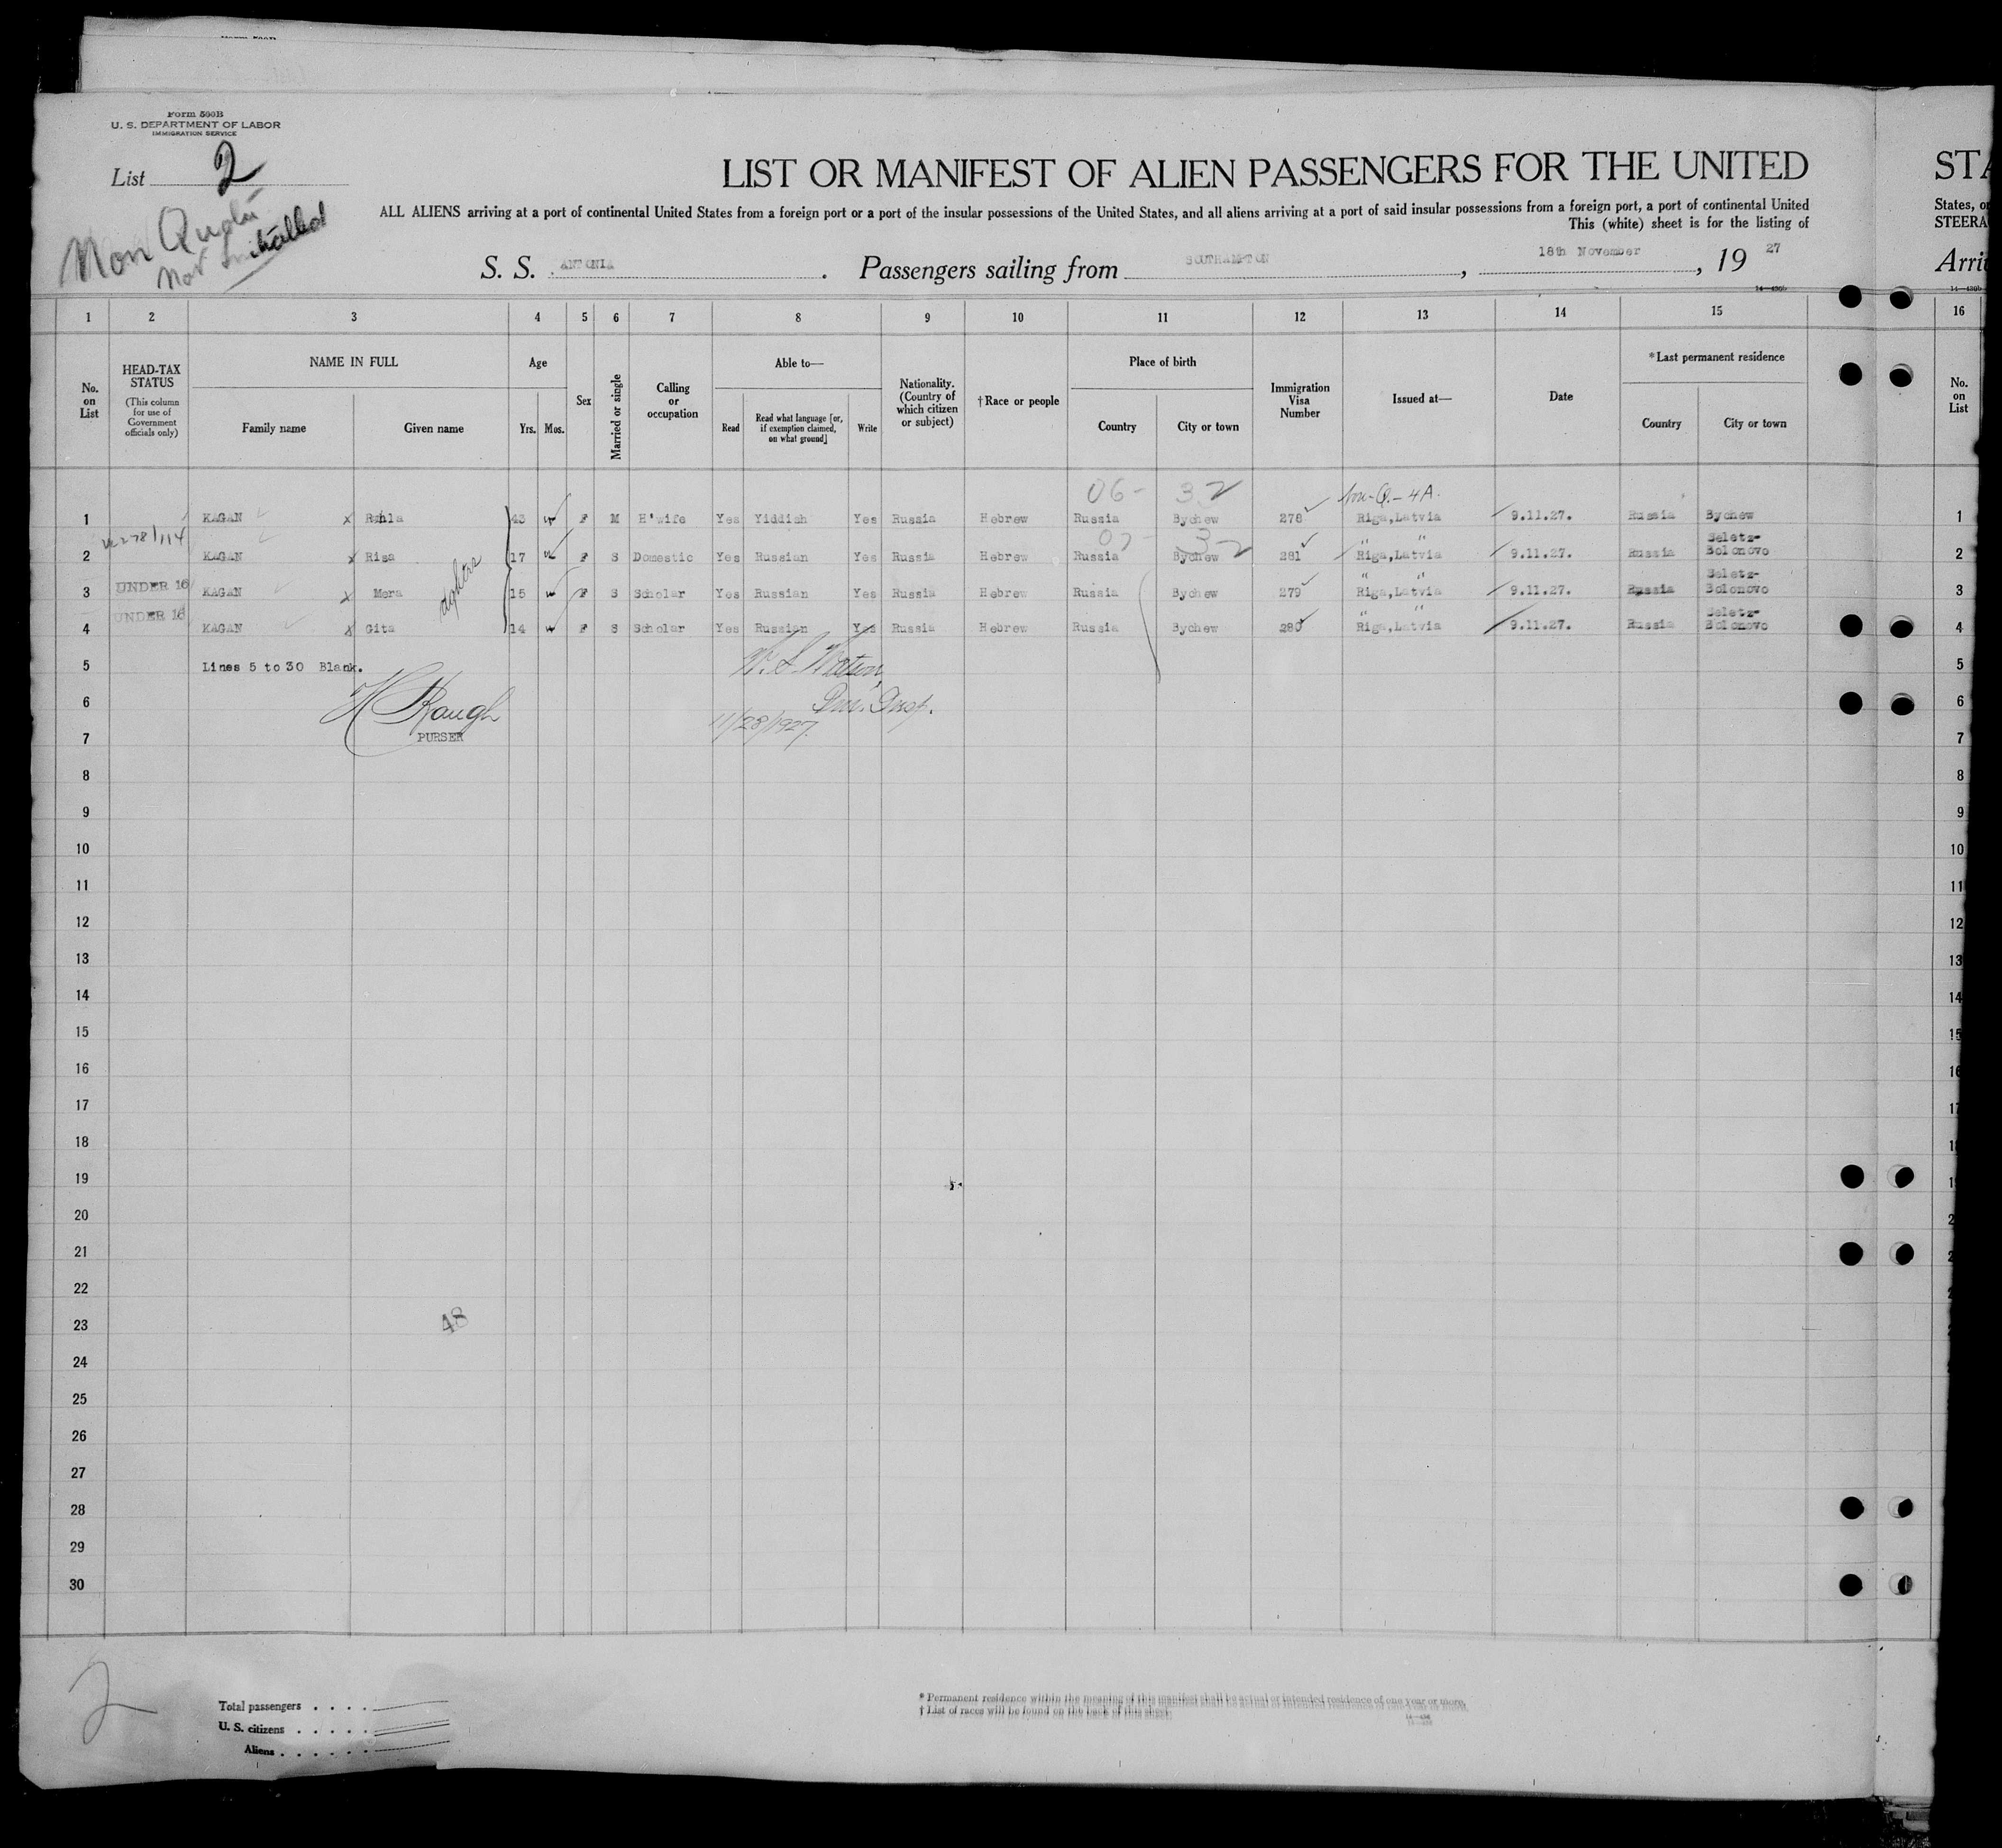 Form 500B
U. S. DEPARTMENT OF LABOR
IMMIGRATION SERVICE
List 2
Non Quota
Not initialled
LIST OR MANIFEST OF ALIEN PASSENGERS FOR THE UNITED
ALL ALIENS arriving at a port of continental United States from a foreign port or a port of the insular possessions of the United States, and all aliens arriving at a port of said insular possessions from a foreign port, a port of continental United
This (white) sheet is for the listing of
S. S. ANTONIA. Passengers sailing from SOUTHAMPTON, 18th November, 19 27
STA
States, o
STEERA
Arri
1 2 3 4 5 6 7 8 9 10 11 12 13 14 15 16
No. on List
HEAD-TAX STATUS (This column for use of Government officials only)
NAME IN FULL
Family name Given name
Age
Yrs. Mos.
Sex
Married or single
Calling or occupation
Able to—
Read
Read what language [or, if exemption claimed, on what ground]
Write
Nationality. (Country of which citizen or subject)
†Race or people
Place of birth
Country City or town
Immigration Visa Number
Issued at—
Date
*Last permanent residence
Country City or town
No. on List
06- 32 Non-Q.-4A.
1 KAGAN x 43 F M H'wife Yes Yiddish Yes Russia Hebrew Russia Bychew 278 Riga,Latvia 9.11.27. Russia Bychew 1
2 KAGAN x Risa 17 F S Domestic Yes Russian Yes Russia Hebrew Russia Bychew 281 Riga,Latvia 9.11.27. Russia Seletz-Bolonovo 2
3 UNDER 16 KAGAN x Mera 15 F S Scholar Yes Russian Yes Russia Hebrew Russia Bychew 279 Riga,Latvia 9.11.27. Russia Seletz-Bolonovo 3
4 UNDER 16 KAGAN x Gita 14 F S Scholar Yes Russian Yes Russia Hebrew Russia Bychew 280 Riga,Latvia 9.11.27. Russia Seletz-Bolonovo 4
5 Lines 5 to 30 Blank. 5
6 Imm. Insp. 6
7 PURSER 11/28/1927. 7
8 8
9 9
10 10
11 11
12 12
13 13
14 14
15 15
16 16
17 17
18
19
20
21
22
23 48
24
25
26
27
28
29
30
2
Total passengers . . . .
U. S. citizens . . . . .
Aliens . . . . . .
* Permanent residence within the meaning of this manifest shall be actual or intended residence of one year or more.
† List of races will be found on the back of this sheet.